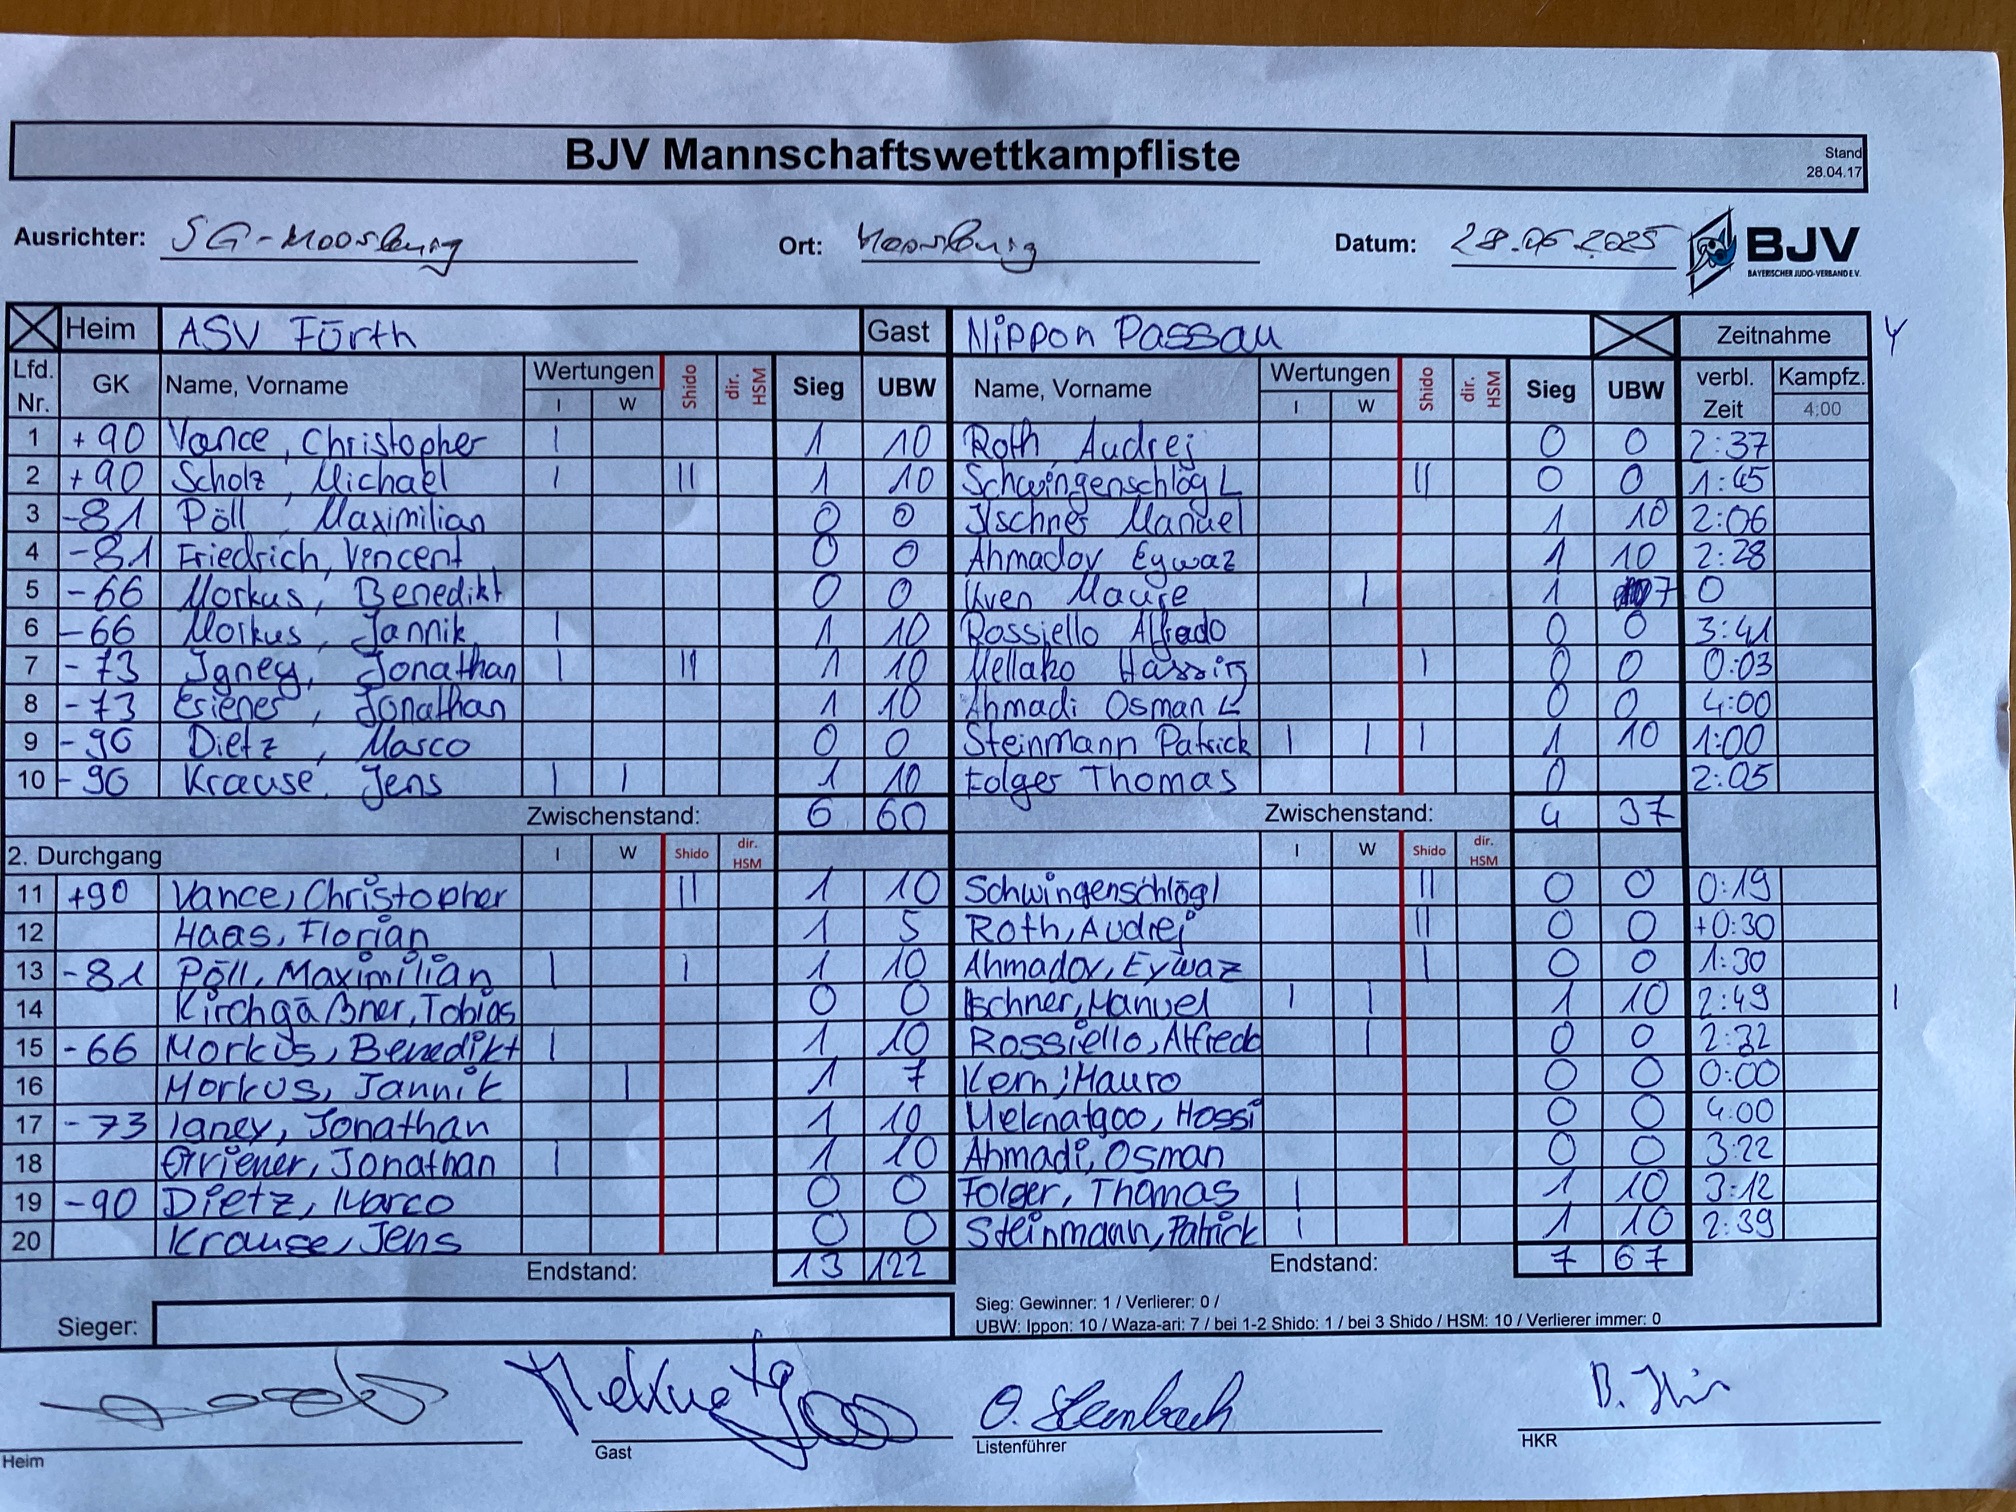 BJV Mannschaftswettkampfliste
Stand
28.04.17
Ausrichter: SG-Moosburg Ort: Moosburg Datum: 28.06.2025 BJV
BAYERISCHER JUDO-VERBAND E.V.
Heim ASV Fürth Gast Nippon Passau Zeitnahme
Lfd. Nr. GK Name, Vorname Wertungen I W Shido dir. HSM Sieg UBW Name, Vorname Wertungen I W Shido dir. HSM Sieg UBW verbl. Zeit Kampfz. 4:00
1 +90 Vance, Christopher I 1 10 Roth Audrej 0 0 2:37
2 +90 Scholz, Michael I II 1 10 Schwingenschlögl II 0 0 1:45
3 -81 Pöll, Maximilian 0 0 Ilschner Manuel 1 10 2:06
4 -81 Friedrich, Vincent 0 0 Ahmadov Eywaz 1 10 2:28
5 -66 Morkus, Benedikt 0 0 I 1 7 0
6 -66 Morkus, Jannik I 1 10 Rossiello Alfredo 0 0 3:41
7 -73 Igney, Jonathan I II 1 10 I 0 0 0:03
8 -73 Jonathan 1 10 Ahmadi Osman 0 0 4:00
9 -90 Dietz, Marco 0 0 Steinmann Patrick I I I 1 10 1:00
10 -90 Krause, Jens I I 1 10 Folger Thomas 0 2:05
Zwischenstand: 6 60 Zwischenstand: 4 37
2. Durchgang I W Shido dir. HSM I W Shido dir. HSM
11 +90 Vance, Christopher II 1 10 Schwingenschlögl II 0 0 0:19
12 Haas, Florian 1 5 Roth, Audrej II 0 0 +0:30
13 -81 Pöll, Maximilian I I 1 10 Ahmadov, Eywaz I 0 0 1:30
14 Kirchgäßner, Tobias 0 0 Ilschner, Manuel I I 1 10 2:49
15 -66 Morkus, Benedikt I 1 10 Rossiello, Alfredo I 0 0 2:32
16 Morkus, Jannik I 1 7 Kern, Mauro 0 0 0:00
17 -73 Igney, Jonathan 1 10 Meknatgoo, Hossi 0 0 4:00
18 Griener, Jonathan I 1 10 Ahmadi, Osman 0 0 3:22
19 -90 Dietz, Marco 0 0 Folger, Thomas I 1 10 3:12
20 Krause, Jens 0 0 Steinmann, Patrick I 1 10 2:39
Endstand: 13 122 Endstand: 7 67
Sieg: Gewinner: 1 / Verlierer: 0 /
UBW: Ippon: 10 / Waza-ari: 7 / bei 1-2 Shido: 1 / bei 3 Shido / HSM: 10 / Verlierer immer: 0
Sieger:
O. Steinbach
Heim Gast Listenführer HKR